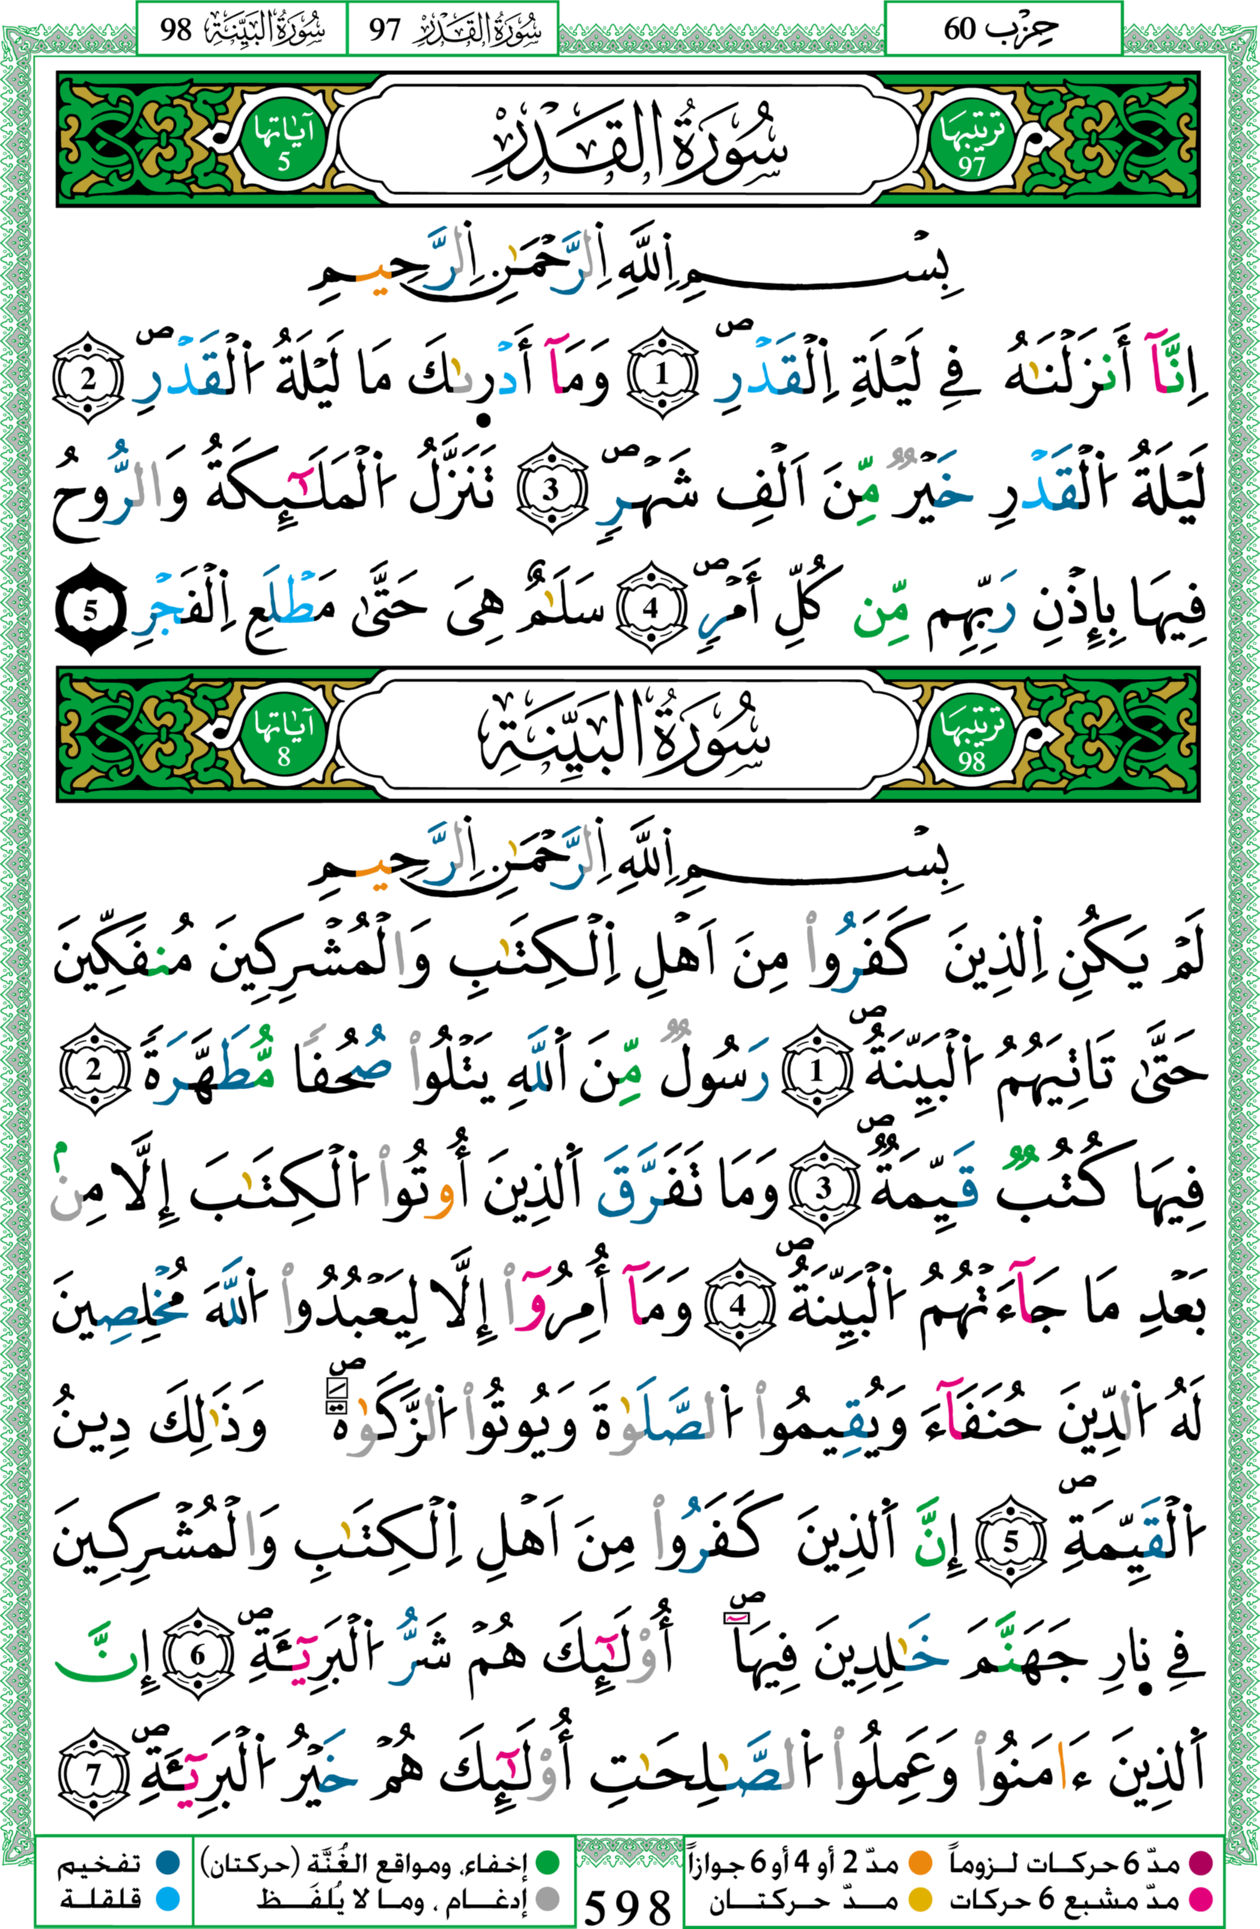 حِزْب 60 سُورَةُ القَدْرِ 97 سُورَةُ البَيِّنَةِ 98
تَرتيبها 97 سُورَةُ القَدْرِ آيَاتها 5
بِسْمِ اِللَّهِ اِلرَّحْمَٰنِ اِلرَّحِيمِ
اِنَّآ أَنزَلْنَٰهُ فِے لَيْلَةِ اِلْقَدْرِۖ 1 وَمَآ أَدْر۪ىٰكَ مَا لَيْلَةُ اُ۬لْقَدْرِۖ 2
لَيْلَةُ اُ۬لْقَدْرِ خَيْرٞ مِّنَ اَلْفِ شَهْرٖۖ 3 تَنَزَّلُ اُ۬لْمَلَٰٓئِكَةُ وَالرُّوحُ
فِيهَا بِإِذْنِ رَبِّهِم مِّن كُلِّ أَمْرٖۖ 4 سَلَٰمٌ هِىَ حَتَّىٰ مَطْلَعِ اِلْفَجْرِ 5
تَرتيبها 98 سُورَةُ البَيِّنَةِ آيَاتها 8
بِسْمِ اِللَّهِ اِلرَّحْمَٰنِ اِلرَّحِيمِ
لَمْ يَكُنِ اِلذِينَ كَفَرُواْ مِنَ اَهْلِ اِلْكِتَٰبِ وَالْمُشْرِكِينَ مُنفَكِّينَ
حَتَّىٰ تَاتِيَهُمُ اُ۬لْبَيِّنَةُۖ 1 رَسُولٞ مِّنَ اَ۬للَّهِ يَتْلُواْ صُحُفاٗ مُّطَهَّرَةٗ 2
فِيهَا كُتُبٞ قَيِّمَةٞۖ 3 وَمَا تَفَرَّقَ اَ۬لذِينَ أُوتُواْ اُ۬لْكِتَٰبَ إِلَّا مِنۢ
بَعْدِ مَا جَآءَتْهُمُ اُ۬لْبَيِّنَةُۖ 4 وَمَآ أُمِرُوٓاْ إِلَّا لِيَعْبُدُواْ اُ۬للَّهَ مُخْلِصِينَ
لَهُ اُ۬لدِّينَ حُنَفَآءَ وَيُقِيمُواْ اُ۬لصَّلَوٰةَ وَيُوتُواْ اُ۬لزَّكَوٰةَۖ وَذَٰلِكَ دِينُ
اُ۬لْقَيِّمَةِۖ 5 إِنَّ اَ۬لذِينَ كَفَرُواْ مِنَ اَهْلِ اِلْكِتَٰبِ وَالْمُشْرِكِينَ
فِے ن۪ارِ جَهَنَّمَ خَٰلِدِينَ فِيهَآۖ أُوْلَٰٓئِكَ هُمْ شَرُّ اُ۬لْبَرِيٓـَٔةِۖ 6 إِنَّ
اَ۬لذِينَ ءَامَنُواْ وَعَمِلُواْ اُ۬لصَّٰلِحَٰتِ أُوْلَٰٓئِكَ هُمْ خَيْرُ اُ۬لْبَرِيٓـَٔةِۖ 7
مدّ 6 حركات لـزوماً مدّ 2 أو 4 أو 6 جوازاً إخفاء، ومواقع الغُنَّة (حركتان) تفخيم
مدّ مشبع 6 حركات مـدّ حركتـان إدغـام ، ومـا لا يُلفَـظ قلقلة
598